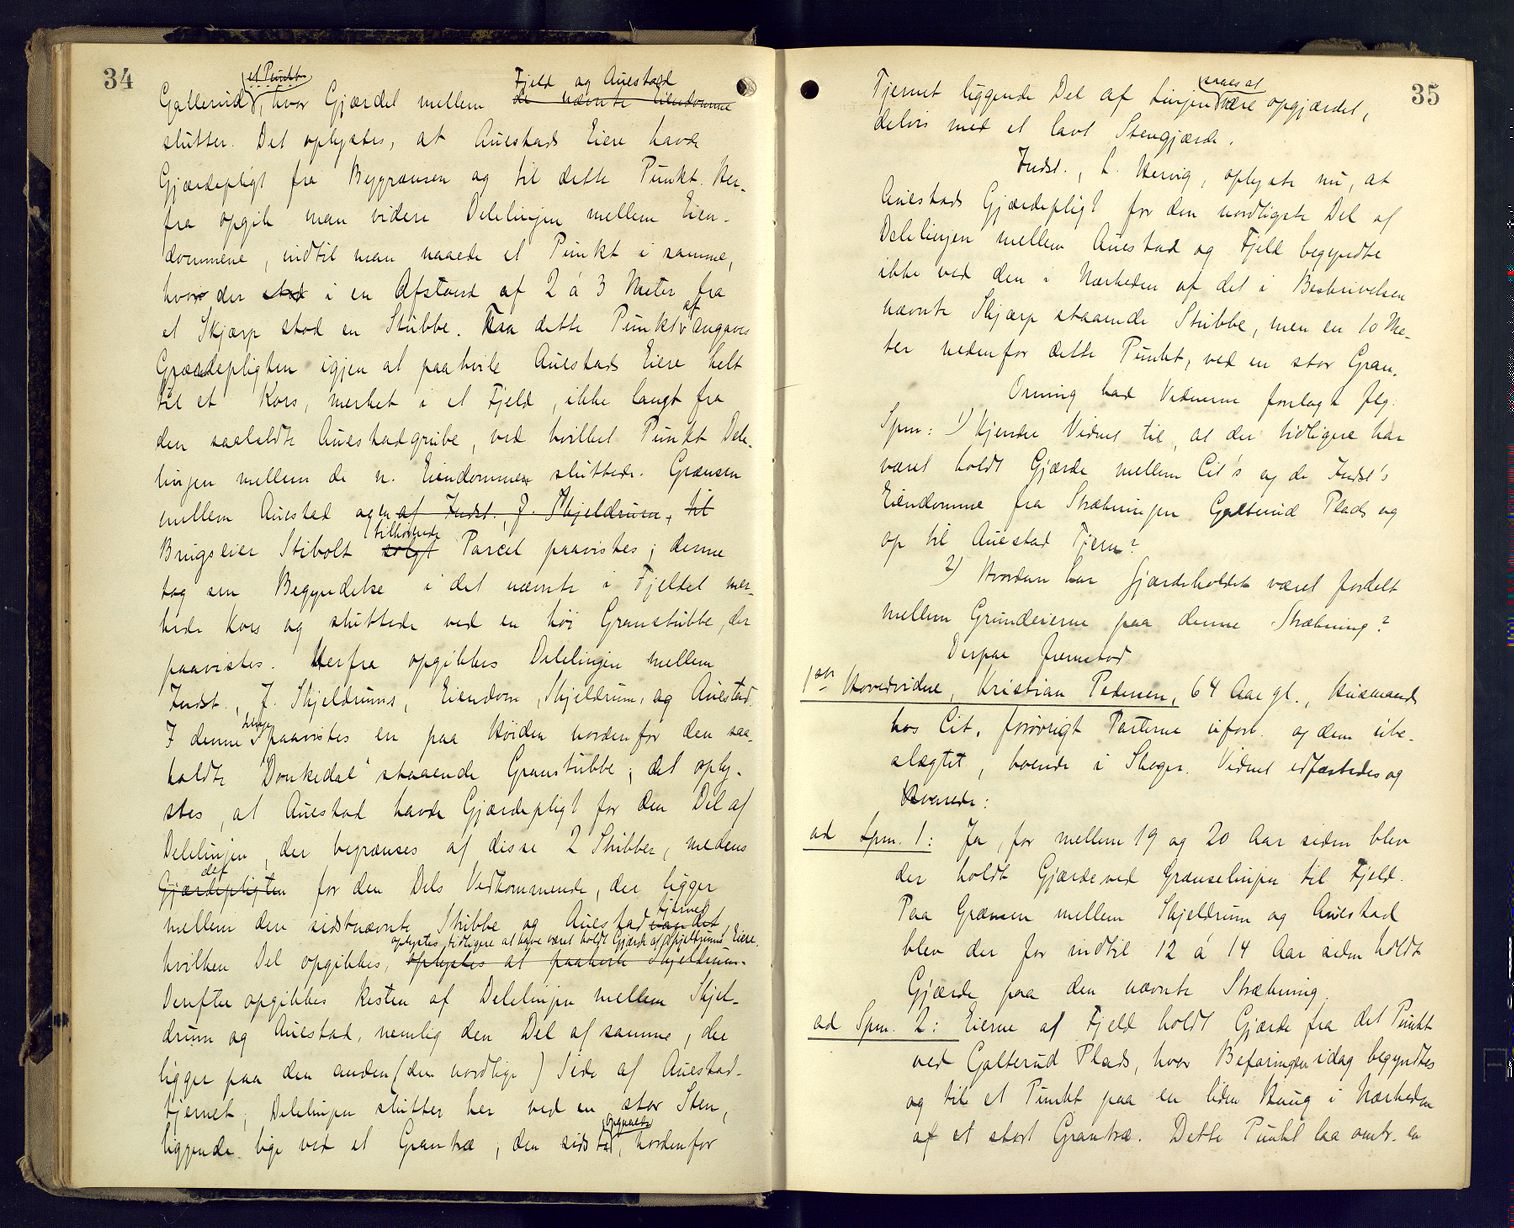 34
et Punkt
Galterud, hvor Gjærdet mellem de nævnte Eiendomme
Fjeld og Auestad
slutter. Det oplystes, at Auestads Eiere havde
Gjærdepligt fra Bygrænsen og til dette Punkt. Her-
fra opgik man videre Delelinjen mellem Eien-
dommene, indtil man naaede et Punkt i samme,
hvor der stod i en Afstand af 2 à 3 Meter fra
et Skjærp stod en Stubbe. Fra dette Punkt af angaves
Gjærdepligten igjen at paahvile Auestads Eiere helt
til et Kors, merket i et Fjeld, ikke langt fra
den saakaldte Auestadgrube, ved hvilket Punkt Dele-
linjen mellem de n. Eiendomme sluttede. Grænsen
mellem Auestad og en af Indst., J. Skjeldrum, til
Brugseier Stibolt solgt Parcel paavistes; denne
tilhørende
tog sin Begyndelse i det nævnte i Fjeldet mer-
kede Kors og sluttede ved en høi Granstubbe, der
paavistes. Herfra opgikkes Delelinjen mellem
Indst., J. Skjeldrums, Eiendom, Skjeldrum, og Auestad.
I denne Linje paavistes en paa Høiden nordenfor den saa-
kaldte "Donkedal" staaende Granstubbe; det oply-
stes, at Auestad havde Gjærdepligt for den Del af
Delelinjen, der begrænses af disse 2 Stubber, medens
det
Gjærdepligten for den Dels Vedkommende, der ligger
mellem den sidstnævnte Stubbe og Auestadvandet
tjernet,
oplystes tidligere at have været holdt Gjærde af Skjeldrums Eiere.
hvilken Del opgikkes, oplystes at paahvile Skjeldrum.
Derefter opgikkes Resten af Delelinjen mellem Skjel-
drum og Auestad, nemlig den Del af samme, der
ligger paa den anden (den nordlige) Side af Auestad-
tjernet; Delelinjen slutter her ved en stor Sten,
liggende lige ved et Grantræ; den sidst opgaaede, nordenfor
35
Tjernet liggende Del af Linjen saaes at være opgjærdet,
delvis med et lavt Stengjærde.
Indst., L. Hervig, oplyste nu, at
Auestads Gjærdepligt for den nordligste Del af
Delelinjen mellem Auestad og Fjeld begyndte
ikke ved den i Nærheden af det i Beskrivelsen
nævnte Skjærp staaende Stubbe, men en 10 Me-
ter nedenfor dette Punkt, ved en stor Gran.
Orning bad Vidnerne forelagt flg.
Spm: 1) Kjender Vidnet til, at der tidligere har
været holdt Gjærde mellem Cit's og de Indst's
Eiendomme fra Strækningen Galterud Plads og
op til Auestad Tjern?
2) Hvordan har Gjærdeholdet været fordelt
mellem Grundeierne paa denne Strækning?
Derpaa fremstod
1ste Hovedvidne, Kristian Pedersen, 64 Aar gl., Husmand
hos Cit., forøvrigt Parterne uforb. og dem ube-
slægtet, boende i Skoger. Vidnet edfæstedes og
svarede:
ad Spm. 1: Ja, for mellem 19 og 20 Aar siden blev
der holdt Gjærde ved Grænselinjen til Fjeld.
Paa Grænsen mellem Skjeldrum og Auestad
blev der for indtil 12 á 14 Aar siden holdt
Gjærde paa den nævnte Strækning.
ad Spm. 2: Eierne af Fjeld holdt Gjærde fra det Punkt
ved Galterud Plads, hvor Befaringen idag begyndtes
og til et Punkt paa en liden Haug i Nærheden
af et stort Grantræ. Dette Punkt laa omtr. en